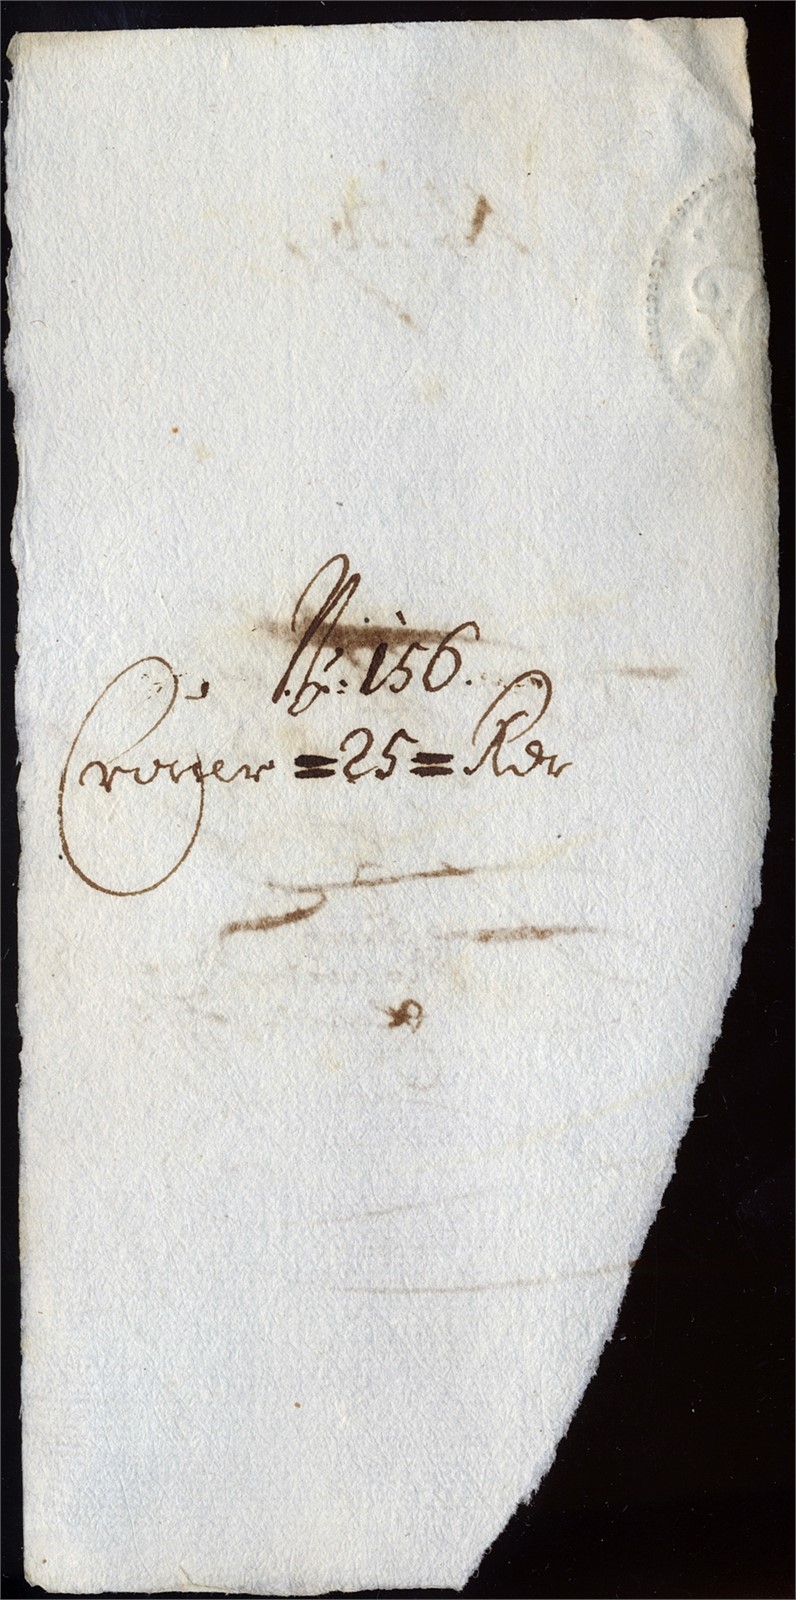 No: 156.
Croner =25= Rdr